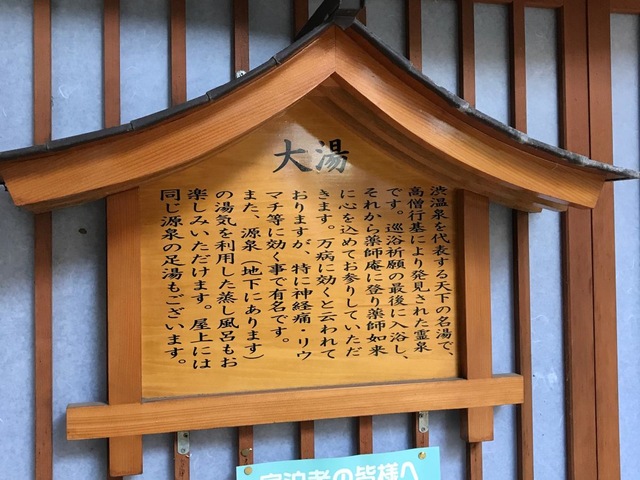 大湯
渋温泉を代表する天下の名湯で、
高僧行基により発見された霊泉
です。巡浴祈願の最後に入浴し、
それから薬師庵に登り薬師如来
に心を込めてお参りしていただ
きます。万病に効くと云われて
おりますが、特に神経痛・リウ
マチ等に効く事で有名です。
また、源泉（地下にあります）
の湯気を利用した蒸し風呂もお
楽しみいただけます。屋上には
同じ源泉の足湯もございます。
宿泊者の皆様へ